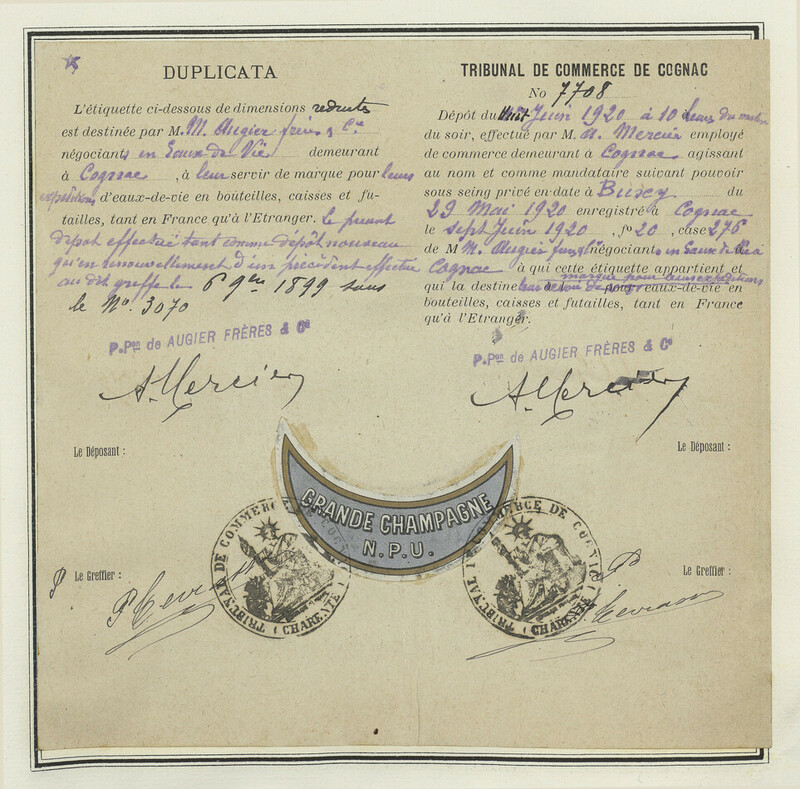 DUPLICATA
L'étiquette ci-dessous de dimensions reduites
est destinée par M.M. Augier frères & Cie
négociants en Eaux de Vie demeurant
à Cognac, à leur servir de marque pour leurs
expéditions d'eaux-de-vie en bouteilles, caisses et fu-
tailles, tant en France qu'à l'Etranger. Le présent
dépôt effectué tant comme dépôt nouveau
qu'en renouvellement d'un précédent effectué
au dit greffe le 6 9bre 1899 sous
le No. 3070
P.Pon de AUGIER FRÈRES & Cie
A. Mercier
Le Déposant :
Le Greffier :
TRIBUNAL DE COMMERCE DE COGNAC
No 7708
Dépôt du huit Juin 1920 à 10 heures du matin
du soir, effectué par M. A. Mercier employé
de commerce demeurant à Cognac agissant
au nom et comme mandataire suivant pouvoir
sous seing privé en date à du
29 Mai 1920 enregistré à Cognac
le sept Juin 1920, fo 20, case 276
de M M. Augier frères négociants en Eaux de Vie à
Cognac à qui cette étiquette appartient et
marque pour leurs expéditions
qui la destine pour eaux-de-vie en
bouteilles, caisses et futailles, tant en France
qu'à l'Etranger.
P.Pon de AUGIER FRÈRES & Cie
A. Mercier
Le Déposant :
Le Greffier :
GRANDE CHAMPAGNE
N.P.U.
TRIBUNAL DE COMMERCE DE COGNAC
( CHARENTE )
TRIBUNAL DE COMMERCE DE COGNAC
( CHARENTE )